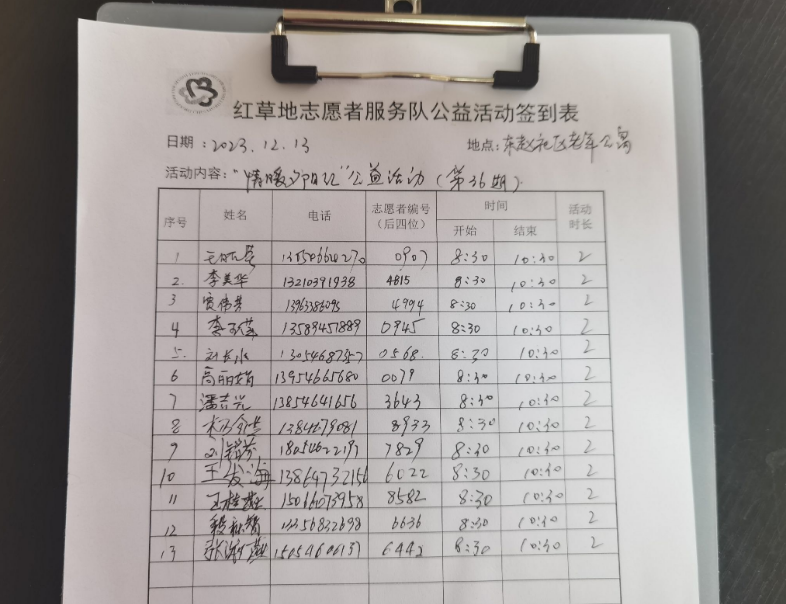 红草地志愿者服务队公益活动签到表
日期:2023.12.13 地点:东赵社区老年公寓
活动内容:"情暖夕阳红"公益活动(第36期)
序号 姓名 电话 志愿者编号(后四位) 时间 开始 结束 活动时长
1 0907 8:30 10:30 2
2. 李美华 13210391938 4815 8:30 10:30 2
3 13963386095 4994 8:30 10:30 2
4 13589451889 0945 8:30 10:30 2
5. 0568. 8:30 10:30 2
6 高丽娟 13954665680 0079 8:30 10:30 2
7 潘吉光 13854641656 3643 8:30 10:30 2
8 8933 8:30 10:30 2
9 7829 8:30 10:30 2
10 王发海 13864732156 6022 8:30 10:30 2
11 15066073958 8582 8:30 10:30 2
12 6636 8:30 10:30 2
13 6442 8:30 10:30 2